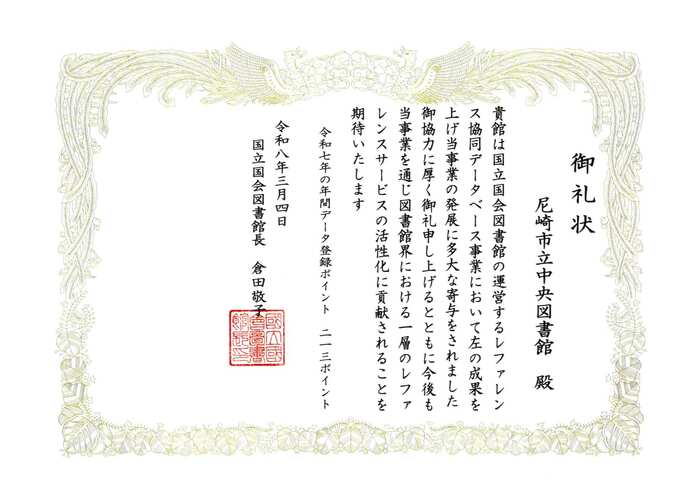 御礼状
尼崎市立中央図書館 殿
貴館は国立国会図書館の運営するレファレン
ス協同データベース事業において左の成果を
上げ当事業の発展に多大な寄与をされました
御協力に厚く御礼申し上げるとともに今後も
当事業を通じ図書館界における一層のレファ
レンスサービスの活性化に貢献されることを
期待いたします
令和七年の年間データ登録ポイント 二一三ポイント
令和八年三月四日
国立国会図書館長 倉田敬子